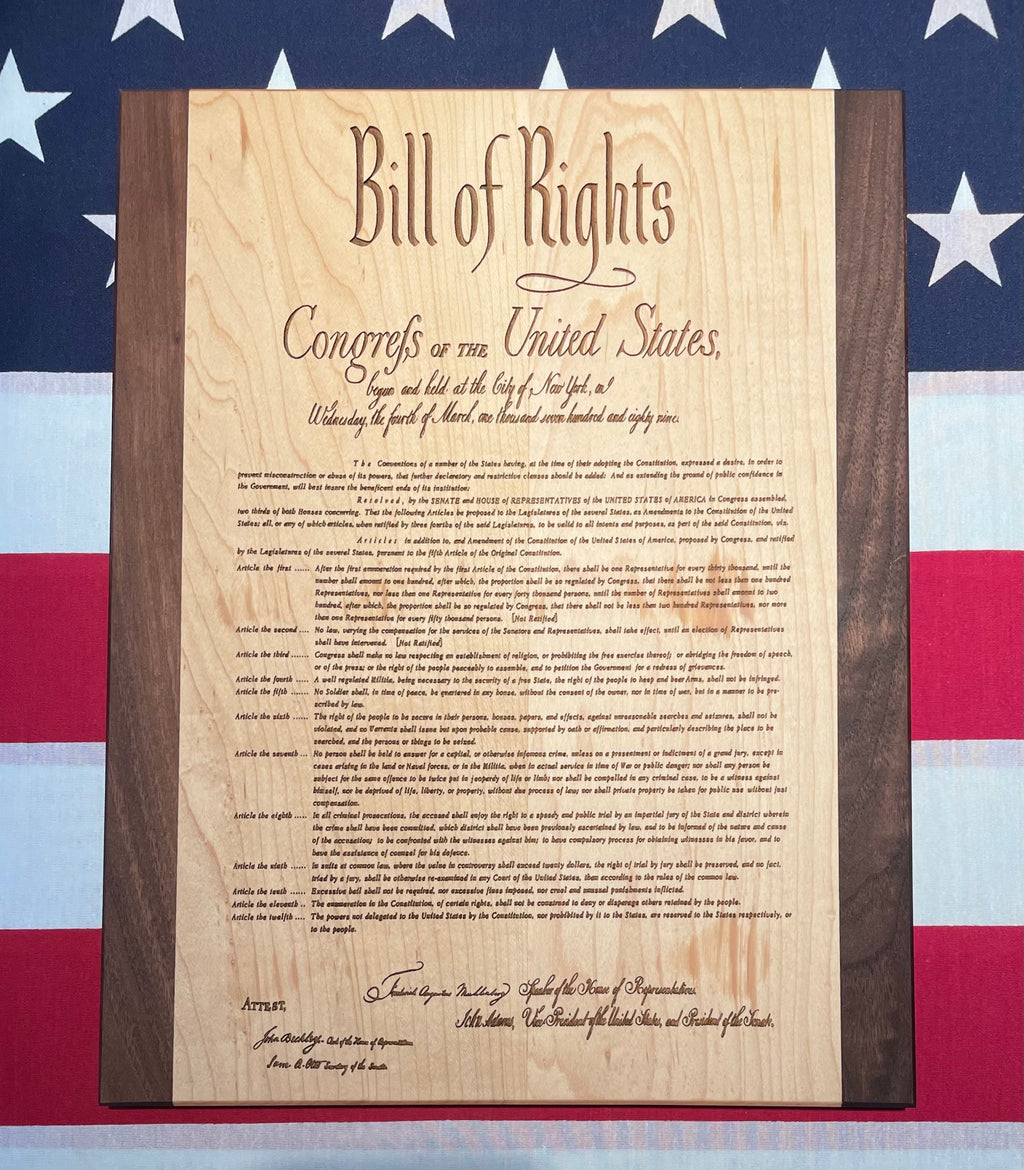 Bill of Rights
Congreſs OF THE United States,
begun and held at the City of New York, on
Wednesday, the fourth of March, one thousand seven hundred and eighty nine.
The Conventions of a number of the States having, at the time of their adopting the Constitution, expressed a desire, in order to
prevent misconstruction or abuse of its powers, that further declaratory and restrictive clauses should be added: And as extending the ground of public confidence in
the Government, will best insure the beneficent ends of its institution;
Resolved, by the SENATE and HOUSE of REPRESENTATIVES of the UNITED STATES of AMERICA in Congress assembled,
two thirds of both Houses concurring. That the following Articles be proposed to the Legislatures of the several States, as Amendments to the Constitution of the United
States; all, or any of which articles, when ratified by three fourths of the said Legislatures, to be valid to all intents and purposes, as part of the said Constitution, viz.
Articles in addition to, and Amendment of the Constitution of the United States of America, proposed by Congress, and ratified
by the Legislatures of the several States, pursuant to the fifth Article of the Original Constitution.
Article the first ...... After the first enumeration required by the first Article of the Constitution, there shall be one Representative for every thirty thousand, until the
number shall amount to one hundred, after which, the proportion shall be so regulated by Congress, that there shall be not less than one hundred
Representatives, nor less than one Representative for every forty thousand persons, until the number of Representatives shall amount to two
hundred, after which, the proportion shall be so regulated by Congress, that there shall not be less than two hundred Representatives, nor more
than one Representative for every fifty thousand persons. [Not Ratified]
Article the second .... No law, varying the compensation for the services of the Senators and Representatives, shall take effect, until an election of Representatives
shall have intervened. [Not Ratified]
Article the third ....... Congress shall make no law respecting an establishment of religion, or prohibiting the free exercise thereof; or abridging the freedom of speech,
or of the press; or the right of the people peaceably to assemble, and to petition the Government for a redress of grievances.
Article the fourth ..... A well regulated Militia, being necessary to the security of a free State, the right of the people to keep and bear Arms, shall not be infringed.
Article the fifth ....... No Soldier shall, in time of peace, be quartered in any house, without the consent of the owner, nor in time of war, but in a manner to be pre-
scribed by law.
Article the sixth ...... The right of the people to be secure in their persons, houses, papers, and effects, against unreasonable searches and seizures, shall not be
violated, and no Warrants shall issue but upon probable cause, supported by oath or affirmation, and particularly describing the place to be
searched, and the persons or things to be seized.
Article the seventh ... No person shall be held to answer for a capital, or otherwise infamous crime, unless on a presentment or indictment of a grand jury, except in
cases arising in the land or Naval forces, or in the Militia, when in actual service in time of War or public danger; nor shall any person be
subject for the same offence to be twice put in jeopardy of life or limb; nor shall be compelled in any criminal case, to be a witness against
himself, nor be deprived of life, liberty, or property, without due process of law; nor shall private property be taken for public use without just
compensation.
Article the eighth ..... In all criminal prosecutions, the accused shall enjoy the right to a speedy and public trial by an impartial jury of the State and district wherein
the crime shall have been committed, which district shall have been previously ascertained by law, and to be informed of the nature and cause
of the accusation; to be confronted with the witnesses against him; to have compulsory process for obtaining witnesses in his favor, and to
have the assistance of counsel for his defence.
Article the ninth ...... In suits at common law, where the value in controversy shall exceed twenty dollars, the right of trial by jury shall be preserved, and no fact,
tried by a jury, shall be otherwise re-examined in any Court of the United States, than according to the rules of the common law.
Article the tenth ...... Excessive bail shall not be required, nor excessive fines imposed, nor cruel and unusual punishments inflicted.
Article the eleventh .. The enumeration in the Constitution, of certain rights, shall not be construed to deny or disparage others retained by the people.
Article the twelfth .... The powers not delegated to the United States by the Constitution, nor prohibited by it to the States, are reserved to the States respectively, or
to the people.
Frederick Augustus Muhlenberg Speaker of the House of Representatives.
ATTEST,
John Adams, Vice President of the United States, and President of the Senate.
John Beckley, Clerk of the House of Representatives
Sam. A. Otis Secretary of the Senate